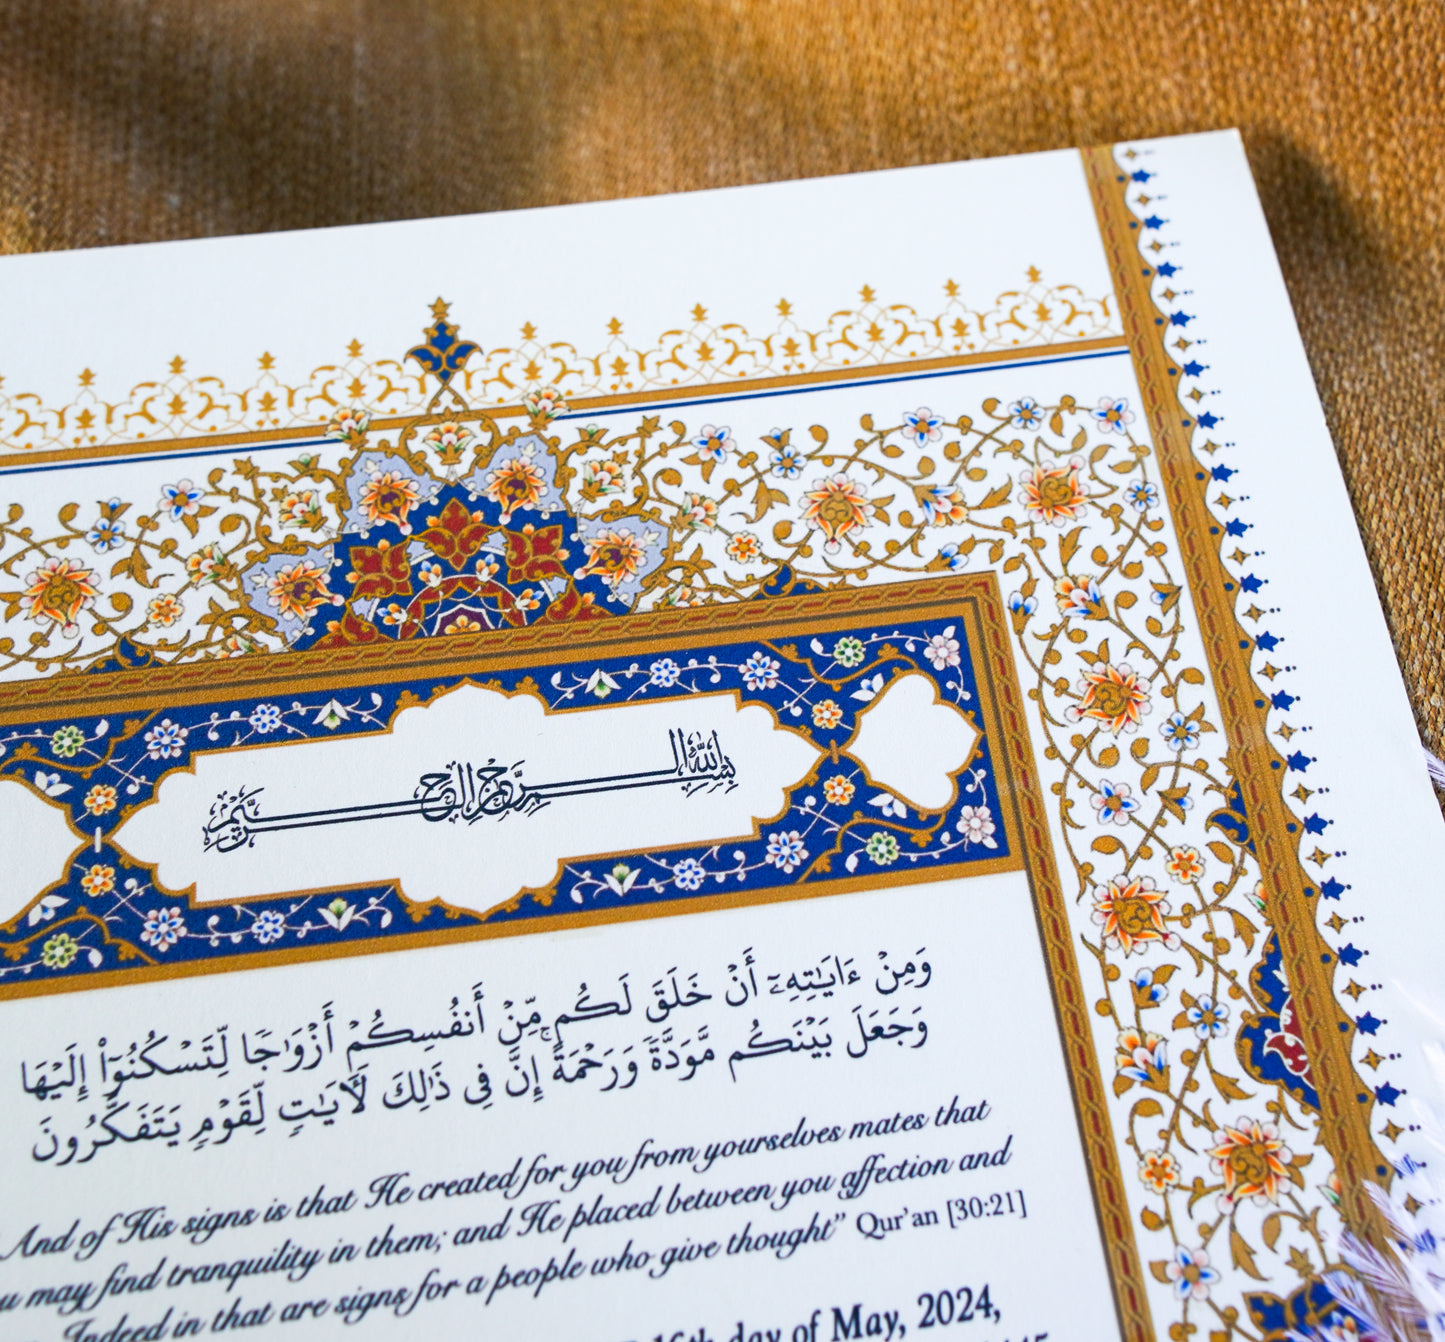 بسم الله الرحمن الرحيم
وَمِنْ ءَايَٰتِهِۦٓ أَنْ خَلَقَ لَكُم مِّنْ أَنفُسِكُمْ أَزْوَٰجًا لِّتَسْكُنُوٓا۟ إِلَيْهَا
وَجَعَلَ بَيْنَكُم مَّوَدَّةً وَرَحْمَةً ۚ إِنَّ فِى ذَٰلِكَ لَـَٔايَٰتٍ لِّقَوْمٍ يَتَفَكَّرُونَ
And of His signs is that He created for you from yourselves mates that
may find tranquility in them; and He placed between you affection and
Indeed in that are signs for a people who give thought” Qur’an [30:21]
16th day of May, 2024,